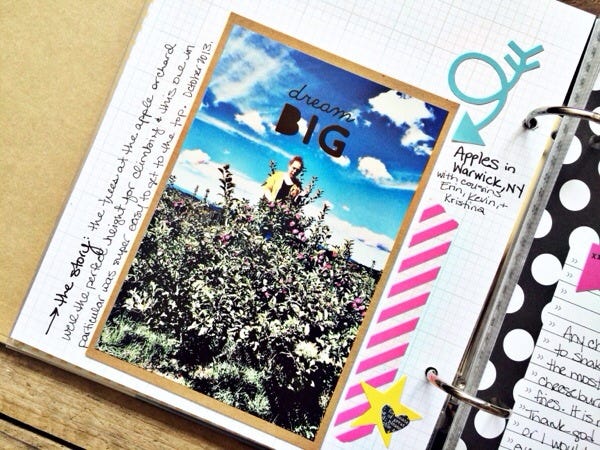 → the story: the trees at the apple orchard
were the perfect height for climbing & this one in
particular was super easy to get to the top. October 2013.
dream
BIG
Apples in
Warwick, NY
with cousins
Erin, Kevin, +
Kristina
xx
Any ch
to shak
the most
cheesebur
fries. It is
Thank god
or I woul